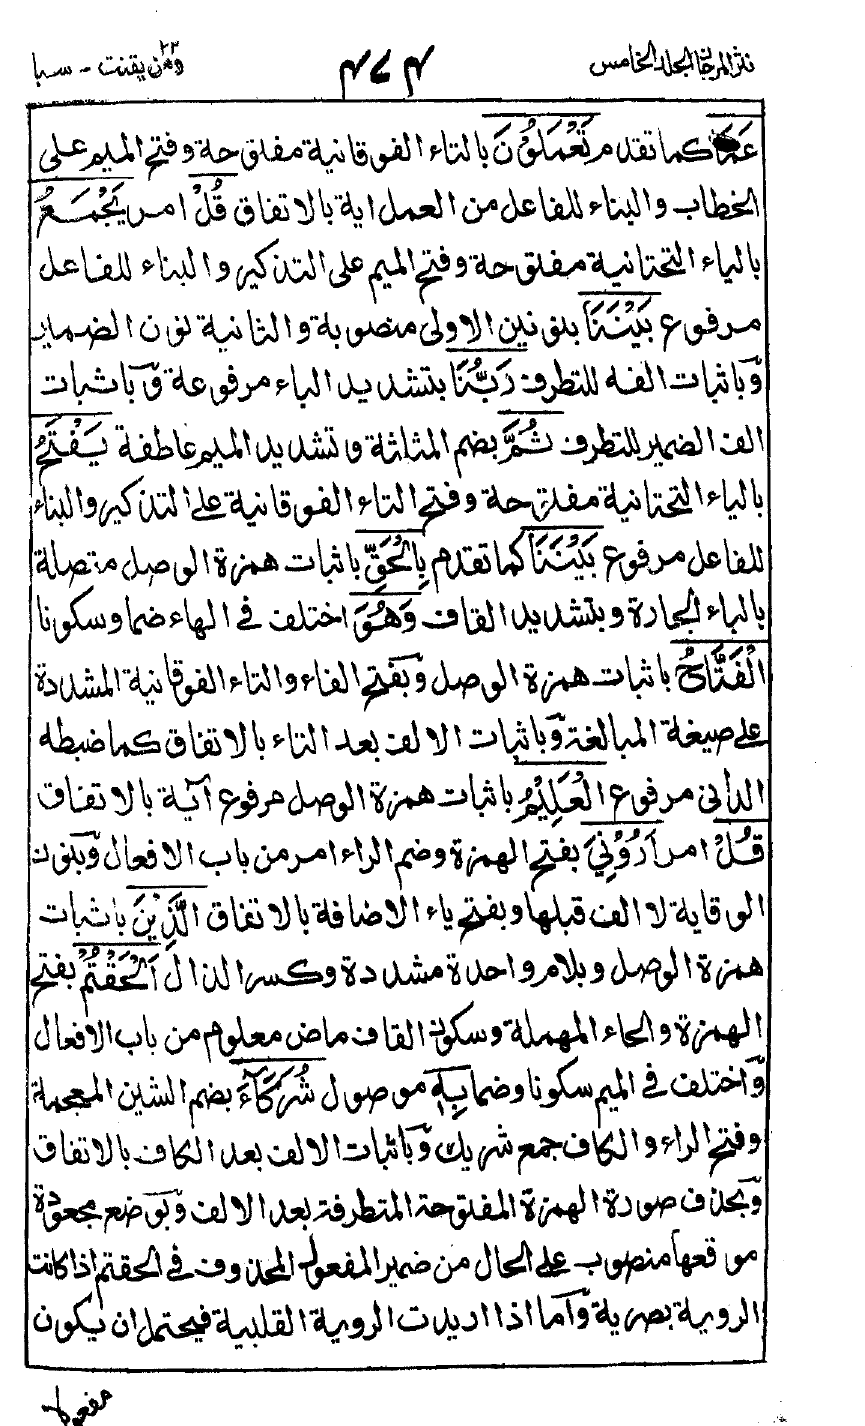 نثر المرجان المجلد الخامس
٤٧٤
ومن يقنت ٢٢ - سبا
عَمَّا كما تقدم تَعْمَلُوْنَ بالتاء الفوقانية مفتوحة وفتح الميم على
الخطاب والبناء للفاعل من العمل اية بالاتفاق قُلْ امر يَجْمَعُ
بالياء التحتانية مفتوحة وفتح الميم على التذكير والبناء للفاعل
مرفوع بَيْنَنَا بنونين الاولى منصوبة والثانية نون الضمير
وباثبات الفه للتطرف رَبُّنَا بتشديد الباء مرفوعة وباثبات
الف الضمير للتطرف ثُمَّ بضم المثلثة وتشديد الميم عاطفة يَفْتَحُ
بالياء التحتانية مفتوحة وفتح التاء الفوقانية على التذكير والبناء
للفاعل مرفوع بَيْنَنَا كما تقدم بِالْحَقِّ باثبات همزة الوصل متصلة
بالباء الجارة وبتشديد القاف وَهُوَ اختلف في الهاء ضما وسكونا
الْفَتَّاحُ باثبات همزة الوصل وبفتح الفاء والتاء الفوقانية المشددة
على صيغة المبالغة وباثبات الالف بعد التاء بالاتفاق كما ضبطه
الداني مرفوع الْعَلِيْمُ باثبات همزة الوصل مرفوع آية بالاتفاق
قُلْ امر اَرُوْنِيَ بفتح الهمزة وضم الراء امر من باب الافعال وبنون
الوقاية لا الف قبلها وبفتح ياء الاضافة بالاتفاق الَّذِيْنَ باثبات
همزة الوصل وبلام واحدة مشددة وكسر الذال اَلْحَقْتُمْ بفتح
الهمزة والحاء المهملة وسكون القاف ماض معلوم من باب الافعال
واختلف في الميم سكونا وضما بِهٖ موصول شُرَكَآءَ بضم الشين المعجمة
وفتح الراء والكاف جمع شريك وباثبات الالف بعد الكاف بالاتفاق
وبحذف صورة الهمزة المفتوحة المتطرفة بعد الالف وبوضع مجعودة
موقعها منصوب على الحال من ضمير المفعول المحذوف في الحقتم اذا كانت
الروية بصرية وآما اذا اريدت الروية القلبية فيحتمل ان يكون
مفعولا